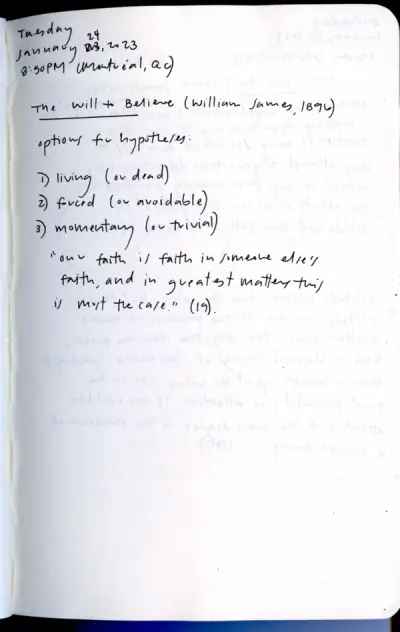 Tuesday
January 24 23, 2023
8:50PM (Montréal, QC)
The Will to Believe (William James, 1896)
options for hypotheses:
1) living (or dead)
2) forced (or avoidable)
3) momentary (or trivial)
"our faith is faith in someone else's
faith, and in greatest matters this
is most the case." (19).